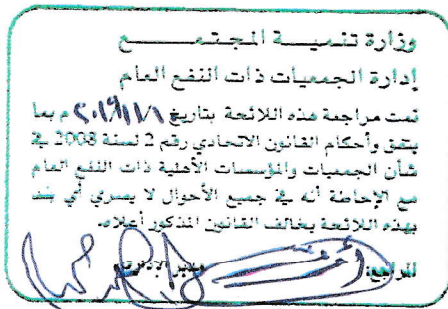 وزارة تنميـــة المجـتمـــــــع
إدارة الجمعيات ذات النفع العام
تمت مراجعة هذه اللائحة بتاريخ م بما
يتفق وأحكام القانون الاتحادي رقم 2 لسنة 2008 في
شأن الجمعيات والمؤسسات الأهلية ذات النفع العام
مع الإحاطة أنه في جميع الأحوال لا يسري أي بند
بهذه اللائحة يخالف القانون المذكور أعلاه.
المراجع: مدير الإدارة